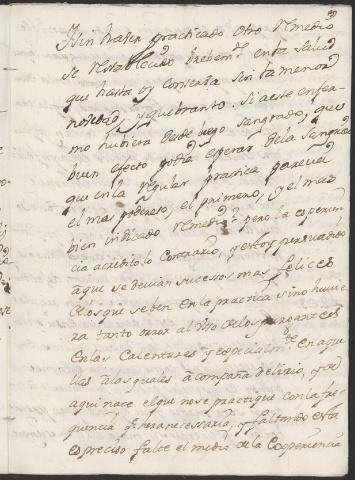 sin haver practicado otro remedio
se restablecio brebemte. en ta salud
que hasta oy conserva sin la menor
novedad, y quebranto. Si a este enfer-
mo hubiera desde luego sangrado, que
buen efecto podia esperar de la sangria
que en la regular practica parecia
el mas poderoso, el primero, y el mas
bien indicado remedio? pero la experien
cia acredito lo contrario, y estoy persuadido
a que se devian sucessos mas felices
de los que se ben en la practica si no huvie
ra tanto orror al Uso de los purgantes
en las Calenturas y especialmte. en aque
llas a las quales acompaña delirio, y de
aqui nace el que no se practique con la fre
quencia q. hera necesaria, y faltando esta
es preciso falte el medio de la Experiencia